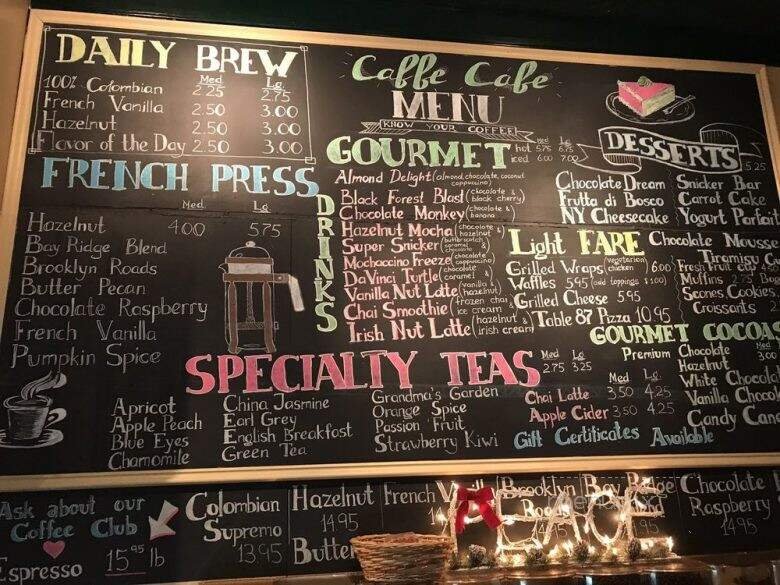 DAILY BREW
Med Lg
100% Colombian 2.25 2.75
French Vanilla 2.50 3.00
Hazelnut 2.50 3.00
Flavor of the Day 2.50 3.00
FRENCH PRESS
Med Lg
Hazelnut 4.00 5.75
Bay Ridge Blend
Brooklyn Roads
Butter Pecan
Chocolate Raspberry
French Vanilla
Pumpkin Spice
Caffe Cafe
MENU
KNOW YOUR COFFEE
GOURMET
Med Lg
hot 5.75 6.75
iced 6.00 7.00
DRINKS
Almond Delight (almond, chocolate, coconut cappuccino)
Black Forest Blast (chocolate & black cherry)
Chocolate Monkey (chocolate & banana)
Hazelnut Mocha (chocolate & hazelnut)
Super Snicker
Mochaccino Freeze (chocolate cappuccino)
DaVinci Turtle (chocolate caramel &
Vanilla Nut Latte (vanilla & hazelnut)
Chai Smoothie (frozen chai ice cream
Irish Nut Latte (hazelnut & irish cream)
DESSERTS
5.25
Chocolate Dream Snicker Bar
Frutta di Bosco Carrot Cake
NY Cheesecake Yogurt Parfait
Chocolate Mousse
Tiramisu
Light FARE
Grilled Wraps vegetarian chicken 6.00
Waffles 5.95 (add toppings $1.00)
Grilled Cheese 5.95
Table 87 Pizza 10.95
Fresh Fruit cup
Muffins 2.75
Scones, Cookies,
Croissants
GOURMET COCOA
Med
Premium Chocolate 3.00
Hazelnut
White Chocol
Vanilla Choco
Candy Can
SPECIALTY TEAS
Med Lg
2.75 3.25
Apricot
Apple Peach
Blue Eyes
Chamomile
China Jasmine
Earl Grey
English Breakfast
Green Tea
Grandma's Garden
Orange Spice
Passion Fruit
Strawberry Kiwi
Med Lg
Chai Latte 3.50 4.25
Apple Cider 3.50 4.25
Gift Certificates Available
Ask about our
Coffee Club
Espresso 15.95 lb
Colombian
Supremo
13.95
Hazelnut
14.95
Butter
French
Brooklyn
Bay Ridge
Chocolate
Raspberry
14.95
PEACE